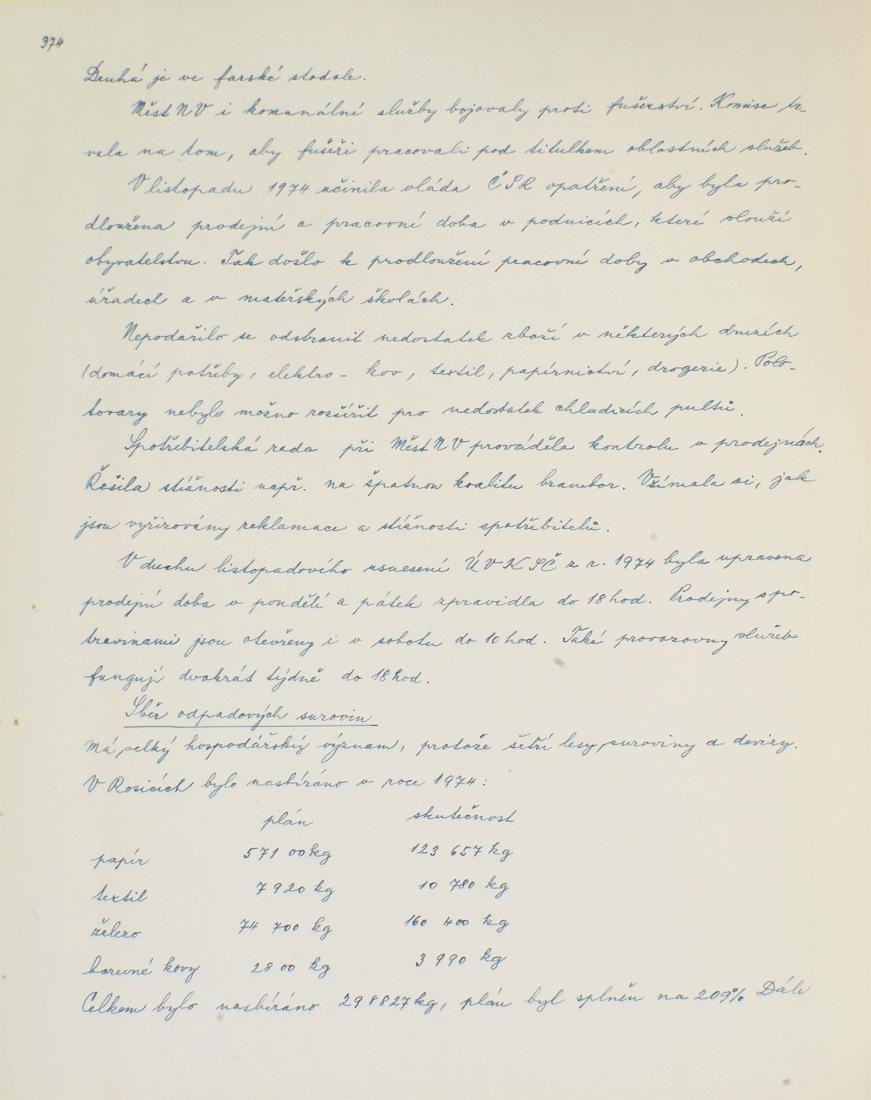 374
Druhá je ve farské stodole.
MěstNV i komunální služby bojovaly proti fušerství. Komise tr-
vala na tom, aby fušeři pracovali pod titulkem oblastních služeb.
V listopadu 1974 učinila vláda ČSR opatření, aby byla pro-
dloužena prodejní a pracovní doba v podnicích, které slouží
obyvatelstvu. Tak došlo k prodloužení pracovní doby v obchodech,
úřadech a v mateřských školách.
Nepodařilo se odstranit nedostatek zboží v některých druzích
(domácí potřeby, elektro - kov, textil, papírnictví, drogerie). Polo-
tovary nebylo možno rozšířit pro nedostatek chladicích pultů.
Spotřebitelská rada při MěstNV prováděla kontrolu v prodejnách.
Řešila stížnosti např. na špatnou kvalitu brambor. Všímala si, jak
jsou vyřizovány reklamace a stížnosti spotřebitelů.
V duchu listopadového usnesení ÚVKSČ z r. 1974 byla upravena
prodejní doba v pondělí a pátek zpravidla do 18 hod. Prodejny s po-
travinami jsou otevřeny i v sobotu do 10 hod. Také provozovny služeb
fungují dvakrát týdně do 18 hod.
Sběr odpadových surovin
má velký hospodářský význam, protože šetří lesy, suroviny a devizy.
V Rosicích bylo nasbíráno v roce 1974:
plán skutečnost
papír 571 00 kg 123 657 kg
textil 7 920 kg 10 780 kg
železo 74 700 kg 160 400 kg
barevné kovy 28 00 kg 3 990 kg
Celkem bylo nasbíráno 298827 kg, plán byl splněn na 209% Dále